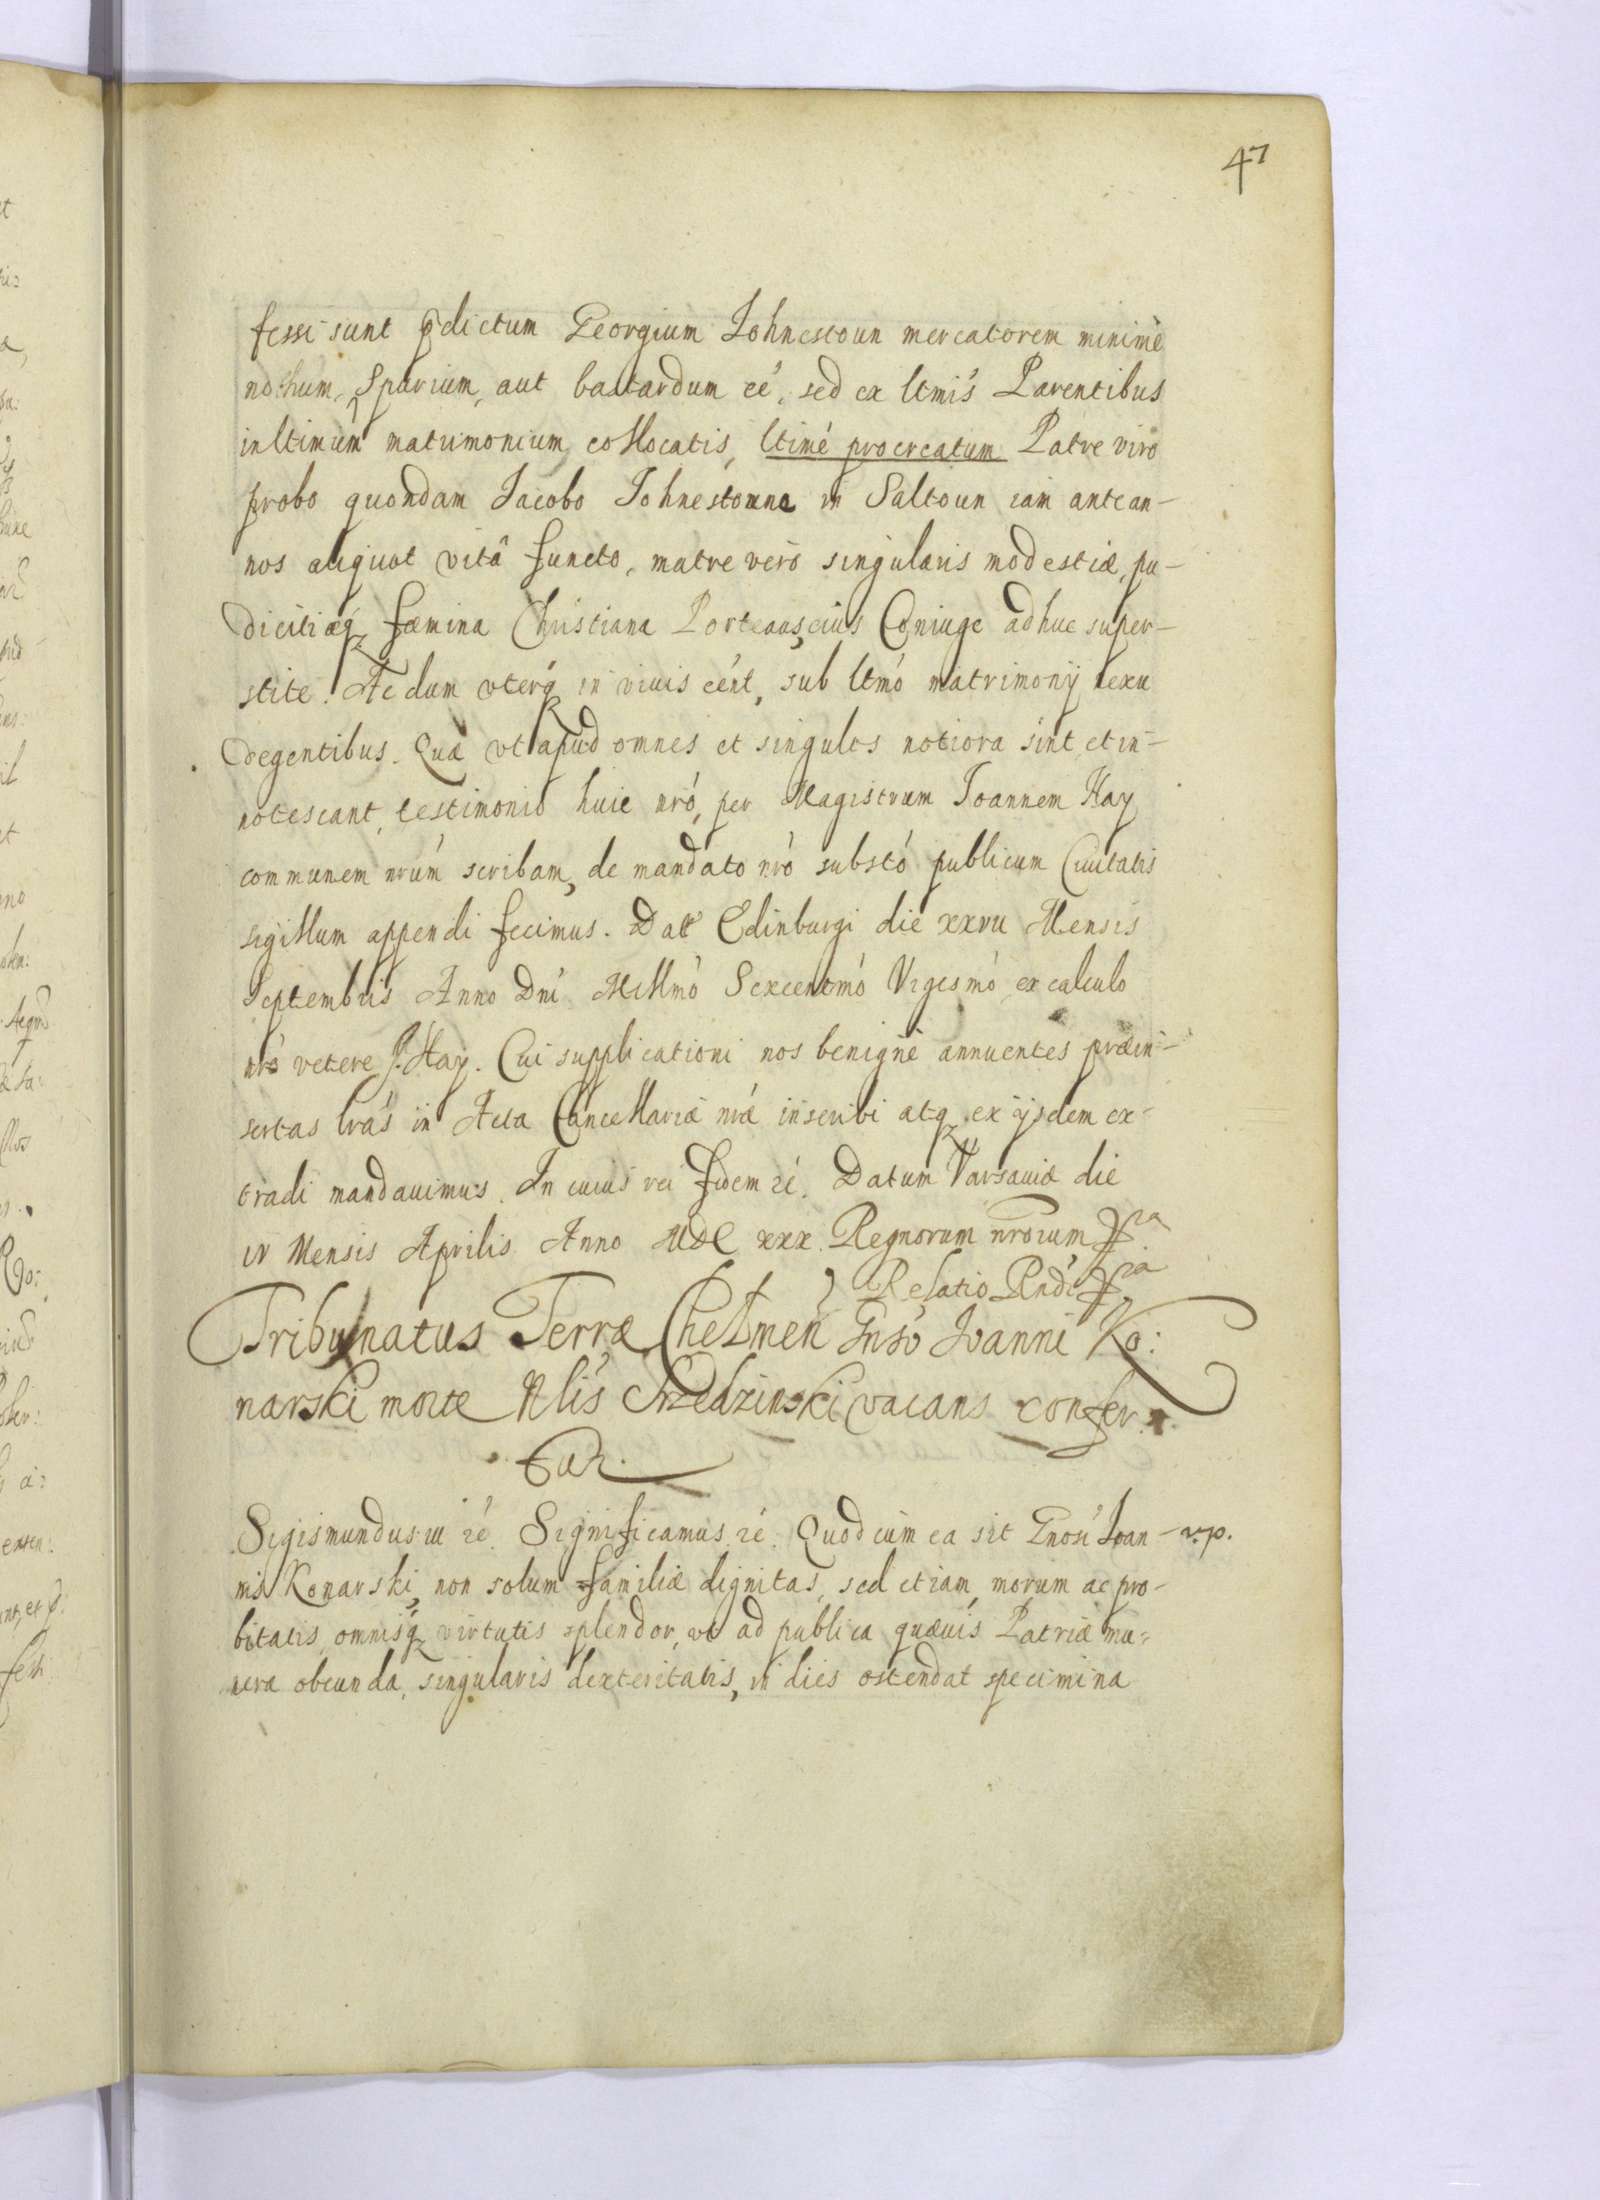 47
fessi sunt pdictum Georgium Johnestoun mercatorem minimè
nothum, Spurium, aut bastardum eé, sed ex ltmis Parentibus
in ltimum matrimonium collocatis, ltimé procreatum Patre viro
probo quondam Jacobo Johnestoune in Saltoun iam antean-
nos aliquot vitâ functo, matre verò singularis modestiæ, pu-
dicitiæq fœmina Christiana Porteaus, eius Coniuge adhuc super-
stite. Ac dum vterq in viuis eént, sub ltmó matrimonij nexu
degentibus. Quæ vt apud omnes et singulos notiora sint, et in-
notescant, testimonio huic nró, per Magistrum Joannem Hay
communem nrúm scribam, de mandato nró substó publicum Ciuitatis
sigillum appendi fecimus. Dat Edinburgi die xxvii Mensis
Septembris Anno Dní Millmó Sexcentmó Vigesmó ex calculo
nró vetere J. Hay. Cui supplicationi nos benignè annuentes præin-
sertas lrás in Acta Cancellariæ nræ inscribi atq ex ijsdem ex-
tradi mandauimus. In cuius rei fidem ré. Datum Varsauiæ die
iv Mensis Aprilis Anno MDC xxx. Regnorum nrorum
Relatio Rndi
Tribunatus Terræ Chelmen Gnso Joanni Ko:
narski morte Nlis Srzedzinski vacans confer
tur.
Sigismundus iii ré. Significamus ré. Quod cum ea sit Gnosi Joan- v.p.
nis Konarski, non solum familiæ dignitas, sed etiam morum ac pro-
bitatis, omnisq virtutis splendor, vt ad publica quæuis Patriæ mu-
nera obeunda, singularis dexteritatis, in dies ostendat specimina